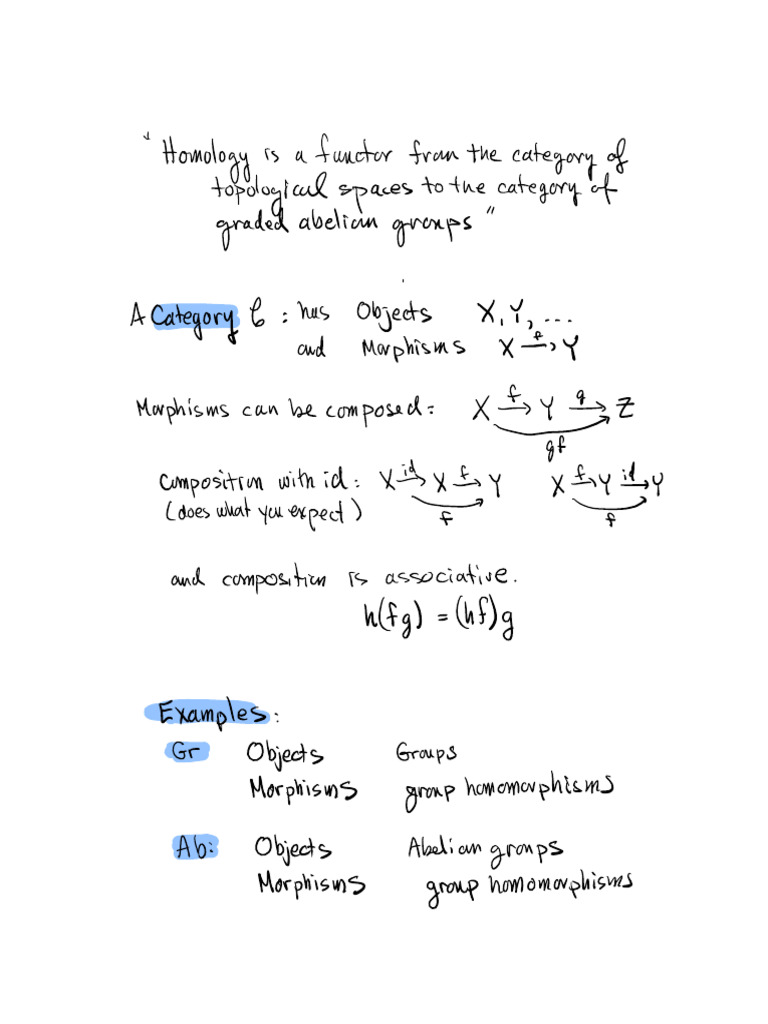 "Homology is a functor from the category of
topological spaces to the category of
graded abelian groups"
A Category C : has Objects X, Y, ...
and Morphisms X →f Y
Morphisms can be composed: X →f Y →g Z
gf
Composition with id: X →id X →f Y X →f Y →id Y
(does what you expect) f f
and composition is associative.
h(fg) = (hf)g
Examples:
Gr Objects Groups
Morphisms group homomorphisms
Ab: Objects Abelian groups
Morphisms group homomorphisms